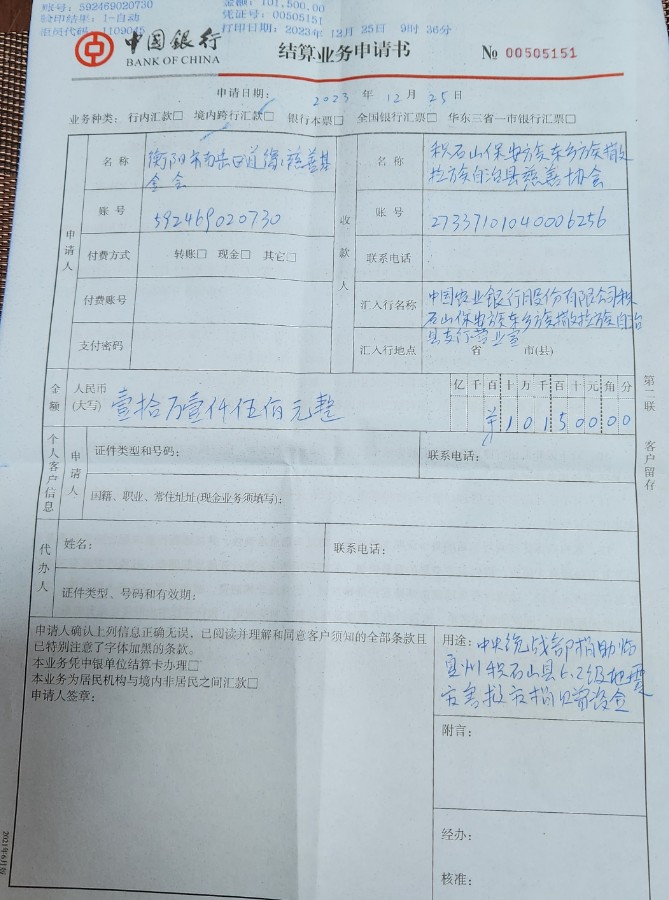 账号：592469020730
金额：101,500.00
验印结果：1-自动
凭证号：00505151
柜员代码：1109045
打印日期：2023年 12月 25日 9时 36分
中国银行
BANK OF CHINA
结算业务申请书
№ 00505151
申请日期： 2023 年 12 月 25 日
业务种类： 行内汇款□ 境内跨行汇款□ 银行本票□ 全国银行汇票□ 华东三省一市银行汇票□
申请人
名 称
衡阳市南岳区道缘慈善基
金会
账 号
592469020730
付费方式
转账□ 现金□ 其它□
付费账号
支付密码
收款人
名 称
积石山保安族东乡族撒
拉族自治县慈善协会
账 号
27337101040006256
联系电话
汇入行名称
中国农业银行股份有限公司积
石山保安族东乡族撒拉族自治
县支行营业室
汇入行地点
省 市(县)
金额
人民币
(大写)
壹拾万壹仟伍佰元整
亿 千 百 十 万 千 百 十 元 角 分
¥ 1 0 1 5 0 0 0 0
第二联 客户留存
个人客户信息
申请人
证件类型和号码：
联系电话：
国籍、职业、常住址址(现金业务须填写)：
代办人
姓名：
联系电话：
证件类型、号码和有效期：
申请人确认上列信息正确无误，已阅读并理解和同意客户须知的全部条款且
已特别注意了字体加黑的条款。
本业务凭中银单位结算卡办理□
本业务为居民机构与境内非居民之间汇款□
申请人签章：
用途：中央统战部捐助临
夏州积石山县6.2级地震
灾害救灾捐 资金
附言：
经办：
核准：
2021年6月印